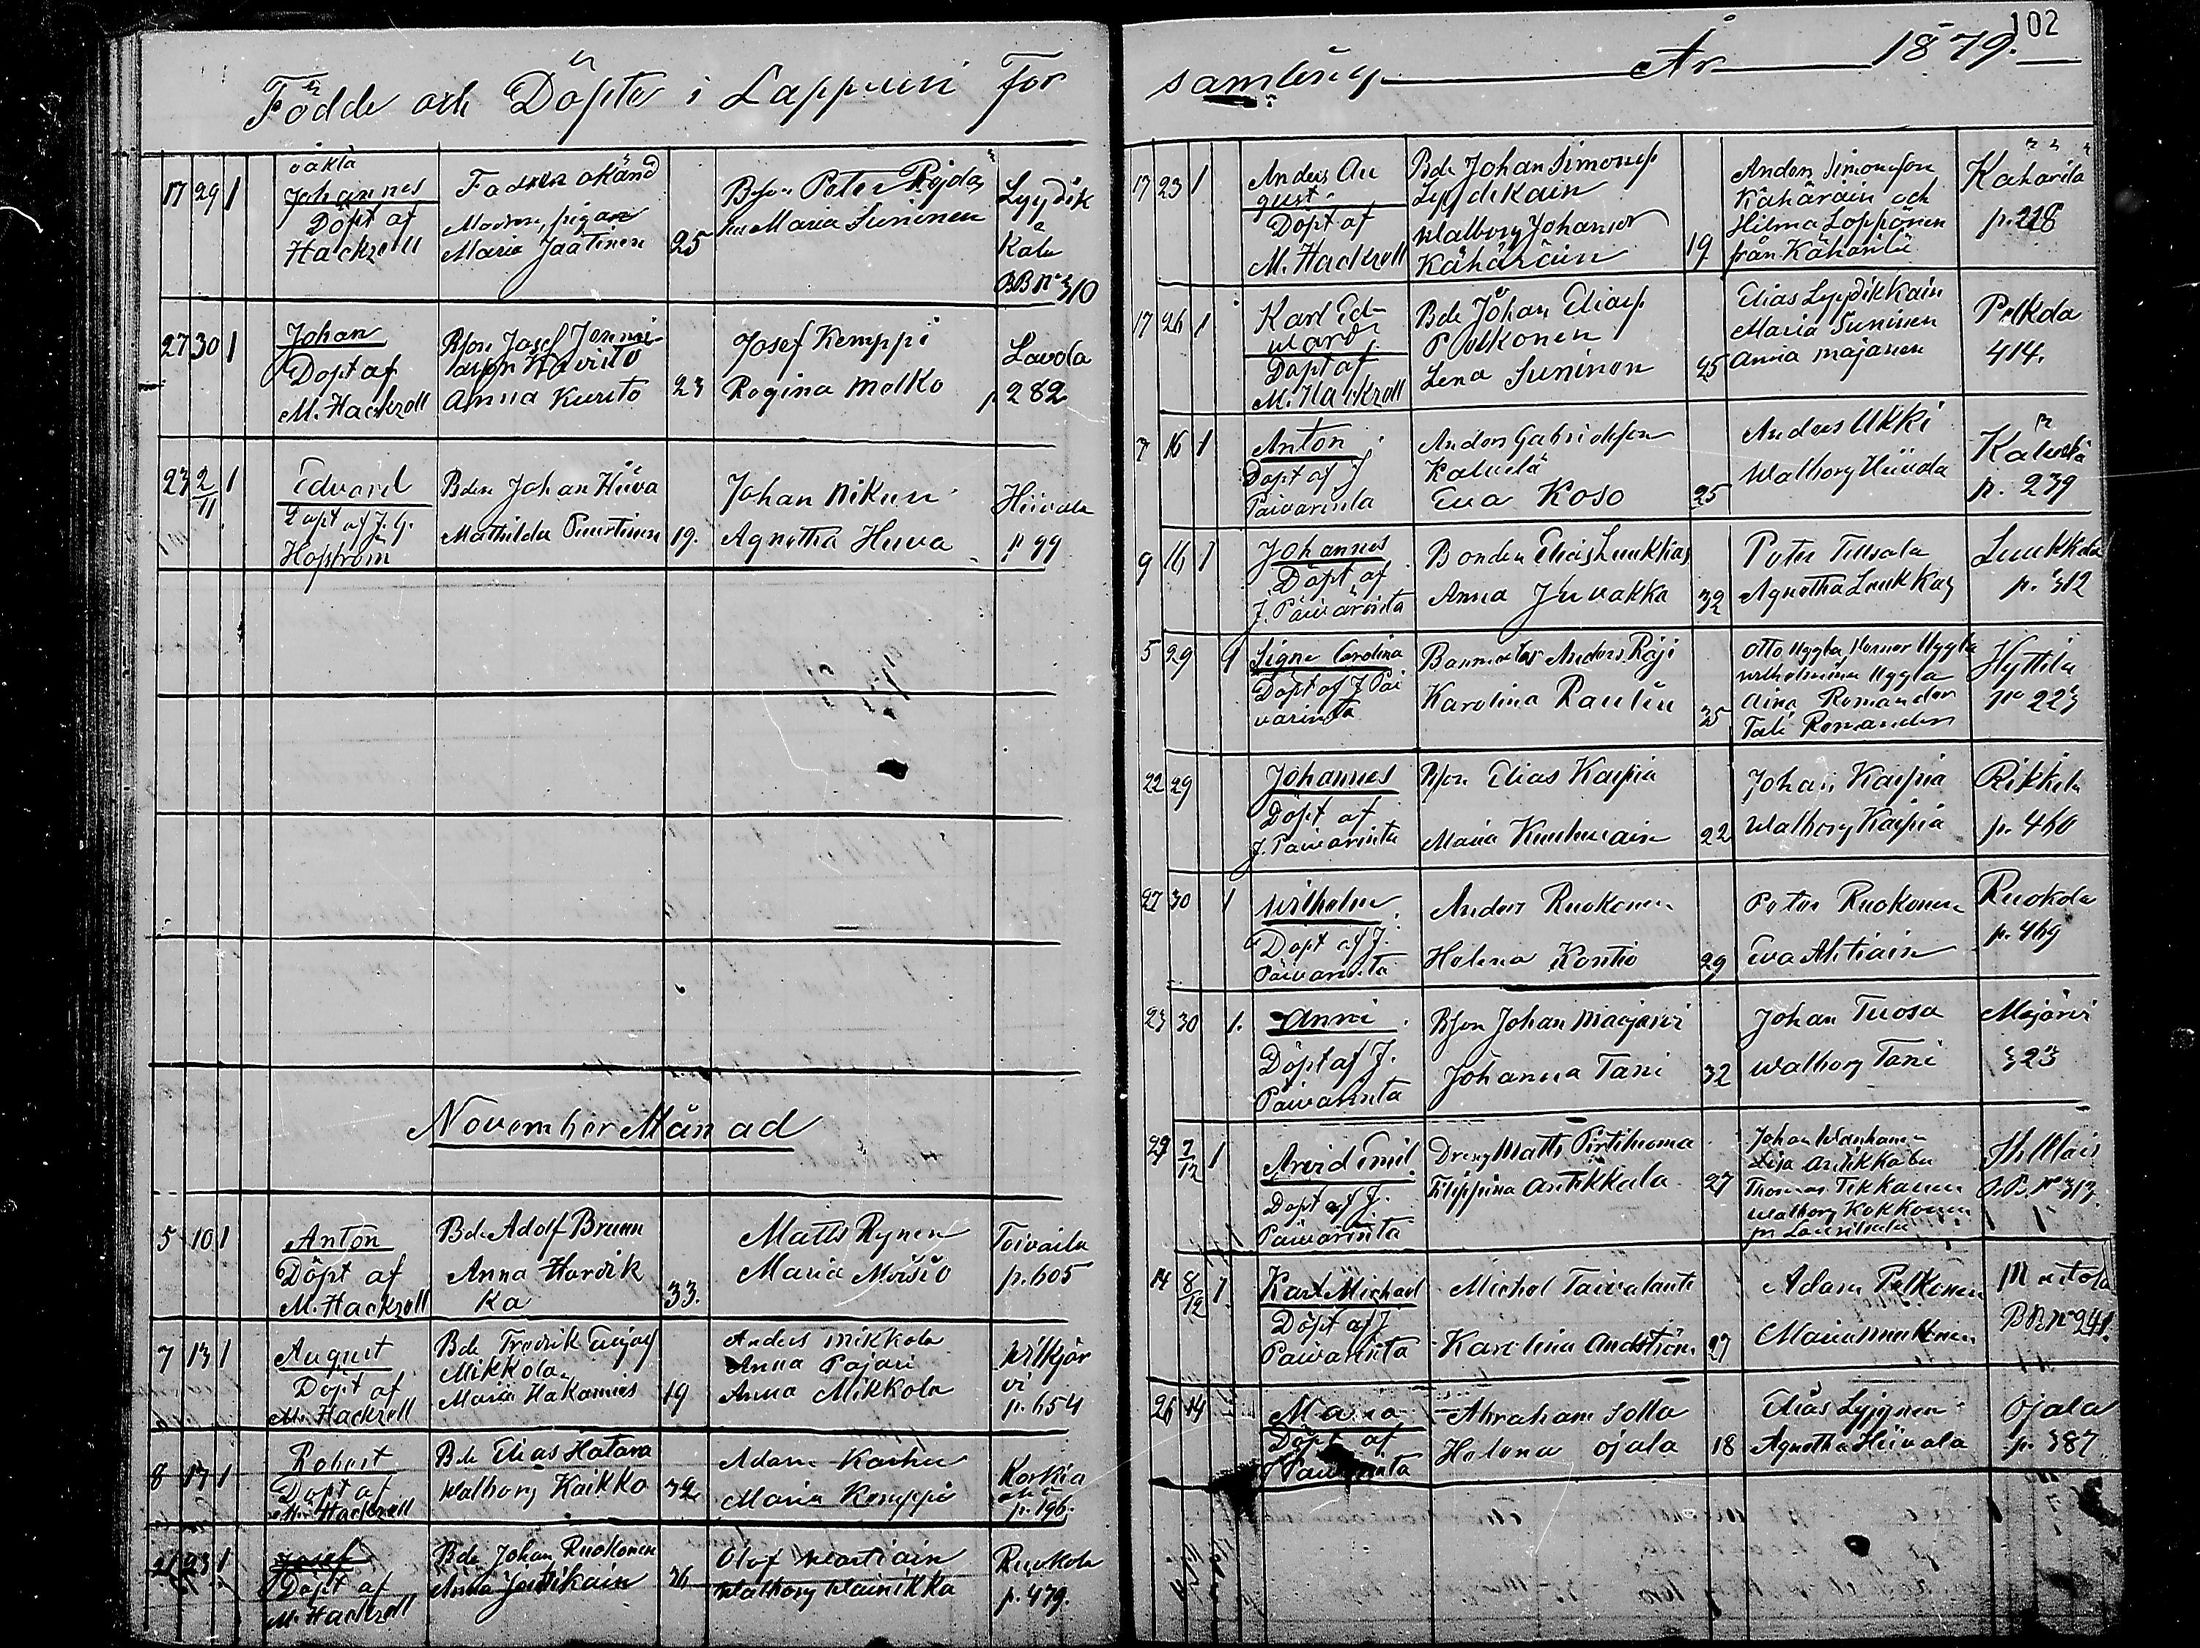 102
Födde och Döpte i Lappvesi För
samling År 1879.
oäkta
17 29 1 Johannes
Döpt af
Hackzell
Fadren okänd
Modren pigan
Maria Jaatinen 25
Bson Peter
hu Maria Suninen
Lyydik
kala
BB No 310
27 30 1 Johan
Döpt af
M. Hackzell
Bson Josef
Anna Kurito 23
Josef Kemppi
Regina Melko
Lavola
p 282
23 2/11 1 Edvard
Döpt af J. G.
Hofström
Bden Johan Hiiva
Mathilda Puurtinen 19.
Johan Nikun
Agnetha Hiiva
Hiivala
p 99
November Månad
5 10 1 Anton
Döpt af
M. Hackzell
Bde Adolf Bruun
Anna Hardik
ka 33.
Matts Rynen
Maria
Toivaila
p. 605
7 13 1 August
Döpt af
M. Hackzell
Bde Fredrik
Mikkola
Maria Hakamies 19
Anders Mikkola
Anna Pajari
Anna Mikkola
Wilkjär
vi
p. 654
8 17 1 Robert
Döpt af
M. Hackzell
Bde Elias Hatara
Walborg Kaikko 32
Adam Karhu
Maria Kemppi
Korkia
p. 196.
21 23 1 Josef
Döpt af
M. Hackzell
Bde Johan Ruokonen
Anna 26
Olof Martiain
Walborg Wainikka
Ruokola
p. 479.
17 23 1 Anders Au
gust
Döpt af
M. Hackzell
Bde Johan Simonsf
Lyydikäin
Walborg Johansdr
Kähäräin 19
Anders Simonsson
Kähäräin och
Hilma Loppönen
från Kähärilä
Kähärilä
p. 218
17 26 1 Karl Ed-
ward
Döpt af
M. Hackzell
Bde Johan Eliasf
Pelkonen
Lena Suninen 25
Elias Lyydikkäin
Maria Suninen
Anna Majanen
Pelkola
414.
7 16 1 Anton
Döpt af J
Päivärinta
Anders Gabrielsson
Eva Koso 25
Anders Ukki
Walborg Hiivala
p. 239
9 16 1 Johannes
Döpt af
J. Päivärinta
Bonden Elias Luukkas
Anna Juvakka 32
Peter Tiusala
Agnetha Luukkas
Luukkala
p. 312
5 29 1 Signe Carolina
Döpt af J Päi
värinta
Anders Röji
Karolina Paulin 35
Otto Uggla, Herner Uggla
Wilhelmina Uggla
Aina Romander
Tali Romander
Hyttilä
No 223
22 29 Johannes
Döpt af
J. Päivärinta
Bson Elias Karpia
Maria Kuukmain 22
Johan Karpia
Walborg Karpia
Rikkilä
p. 460
27 30 1 Wilhelm
Döpt af J.
Päivärinta
Anders Ruokonen
Helena Kontio 29
Peter Ruokonen
Eva Ahtiain
Ruokola
p. 469
23 30 1. Anni
Döpt af J.
Päivärinta
Bson Johan Maajärvi
Johanna Tani 32
Johan Tuosa
Walborg Tani
Majärvi
323
29 7/12 1 Arvid Emil
Döpt af J.
Päivärinta
Dreng Matts Pirtiluoma
Filippina Antikkala 27
Johan Wanhanen
Lisa Antikkala
Thomas Tikkanen
Walborg Kokkonen
BB. No 313
14 8/12 1 Karl Michael
Döpt af J
Päivärinta
Michel Taivalanti
Karolina Andström 27
Adam Pelkonen
Maria Muukkonen
Muntola
BB No 241.
26 14 Maria
Döpt af
J Päivärinta
Abraham Solla
Helena Ojala 18
Elias Lyyjynen
Agnetha Hiivala
Ojala
p. 387